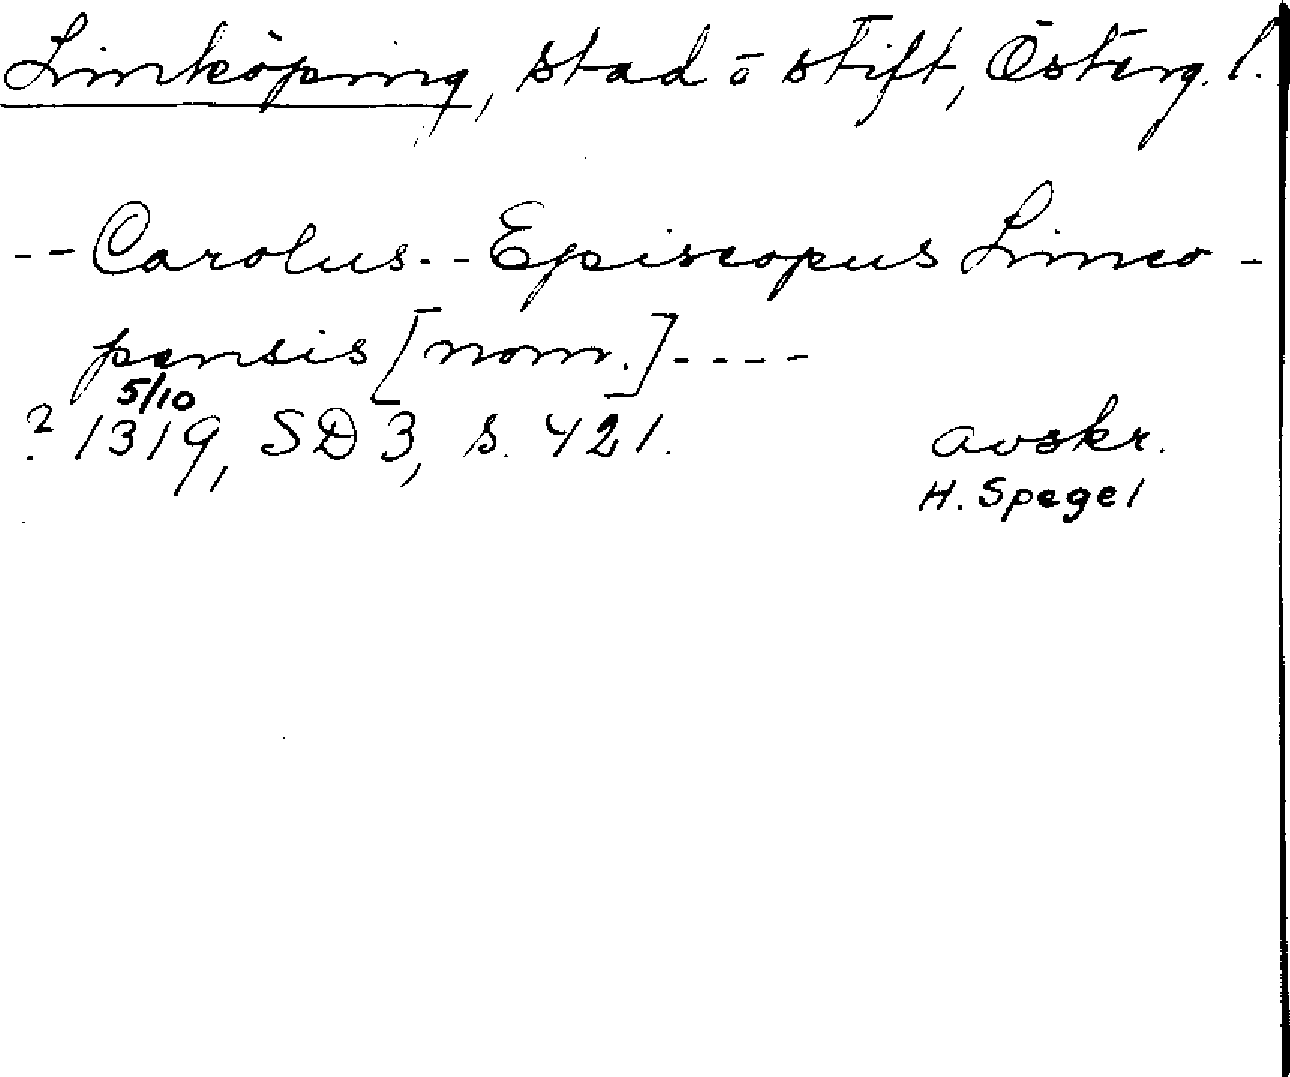 Linköping, stad o stift, Österg. l.
-- Carolus -- Episcopus Linco-
pensis [nom.] ----
5/10
? 1319, SD 3, s. 421. avskr.
H. Spegel